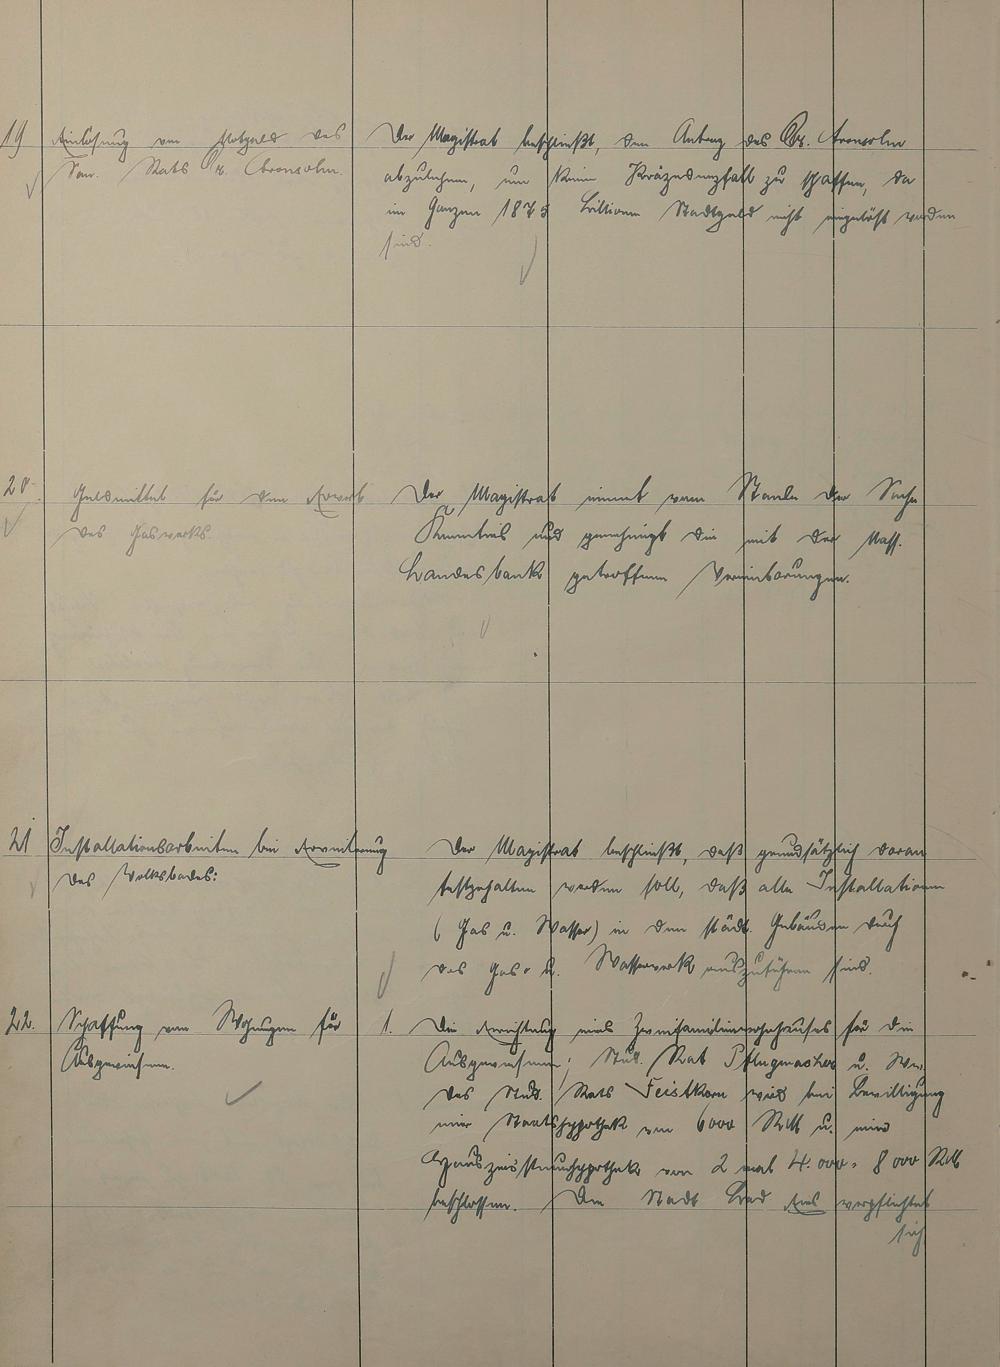 19
Einlösung von Notgeld des
San. Rats Dr. Aronsohn.
Der Magistrat beschließt, den Antrag des Dr. Aronsohn
abzulehnen, um keinen Präzedenzfall zu schaffen, da
im Ganzen 1875 Billionen Stadtgeld nicht eingelöst worden
sind.
20.
Geldmittel für den Erwerb
des Gaswerks.
Der Magistrat nimmt vom Stande der Sache
Kenntnis und genehmigt die mit der Nass.
Landesbank getroffenen Vereinbarungen.
21
Installationsarbeiten bei Erweiterung
des Volksbades:
Der Magistrat beschließt, daß grundsätzlich daran
festgehalten werden soll, daß alle Installationen
(Gas u. Wasser) in den städt. Gebäuden durch
das Gas- u. Wasserwerk auszuführen sind.
22.
Schaffung von Wohnungen für
Ausgewiesene.
1. Die Errichtung eines Zweifamilienwohnhauses für die
Ausgewiesenen; Stud. Rat Pflugmacher u. Wwe.
des Stud. Rats Feistkorn wird bei Bewilligung
einer Staatshypothek von 6000 RM u. einer
Hauszinssteuerhypothek von 2 mal 4.000 = 8 000 RM
beschlossen. Die Stadt Bad Ems verpflichtet
sich